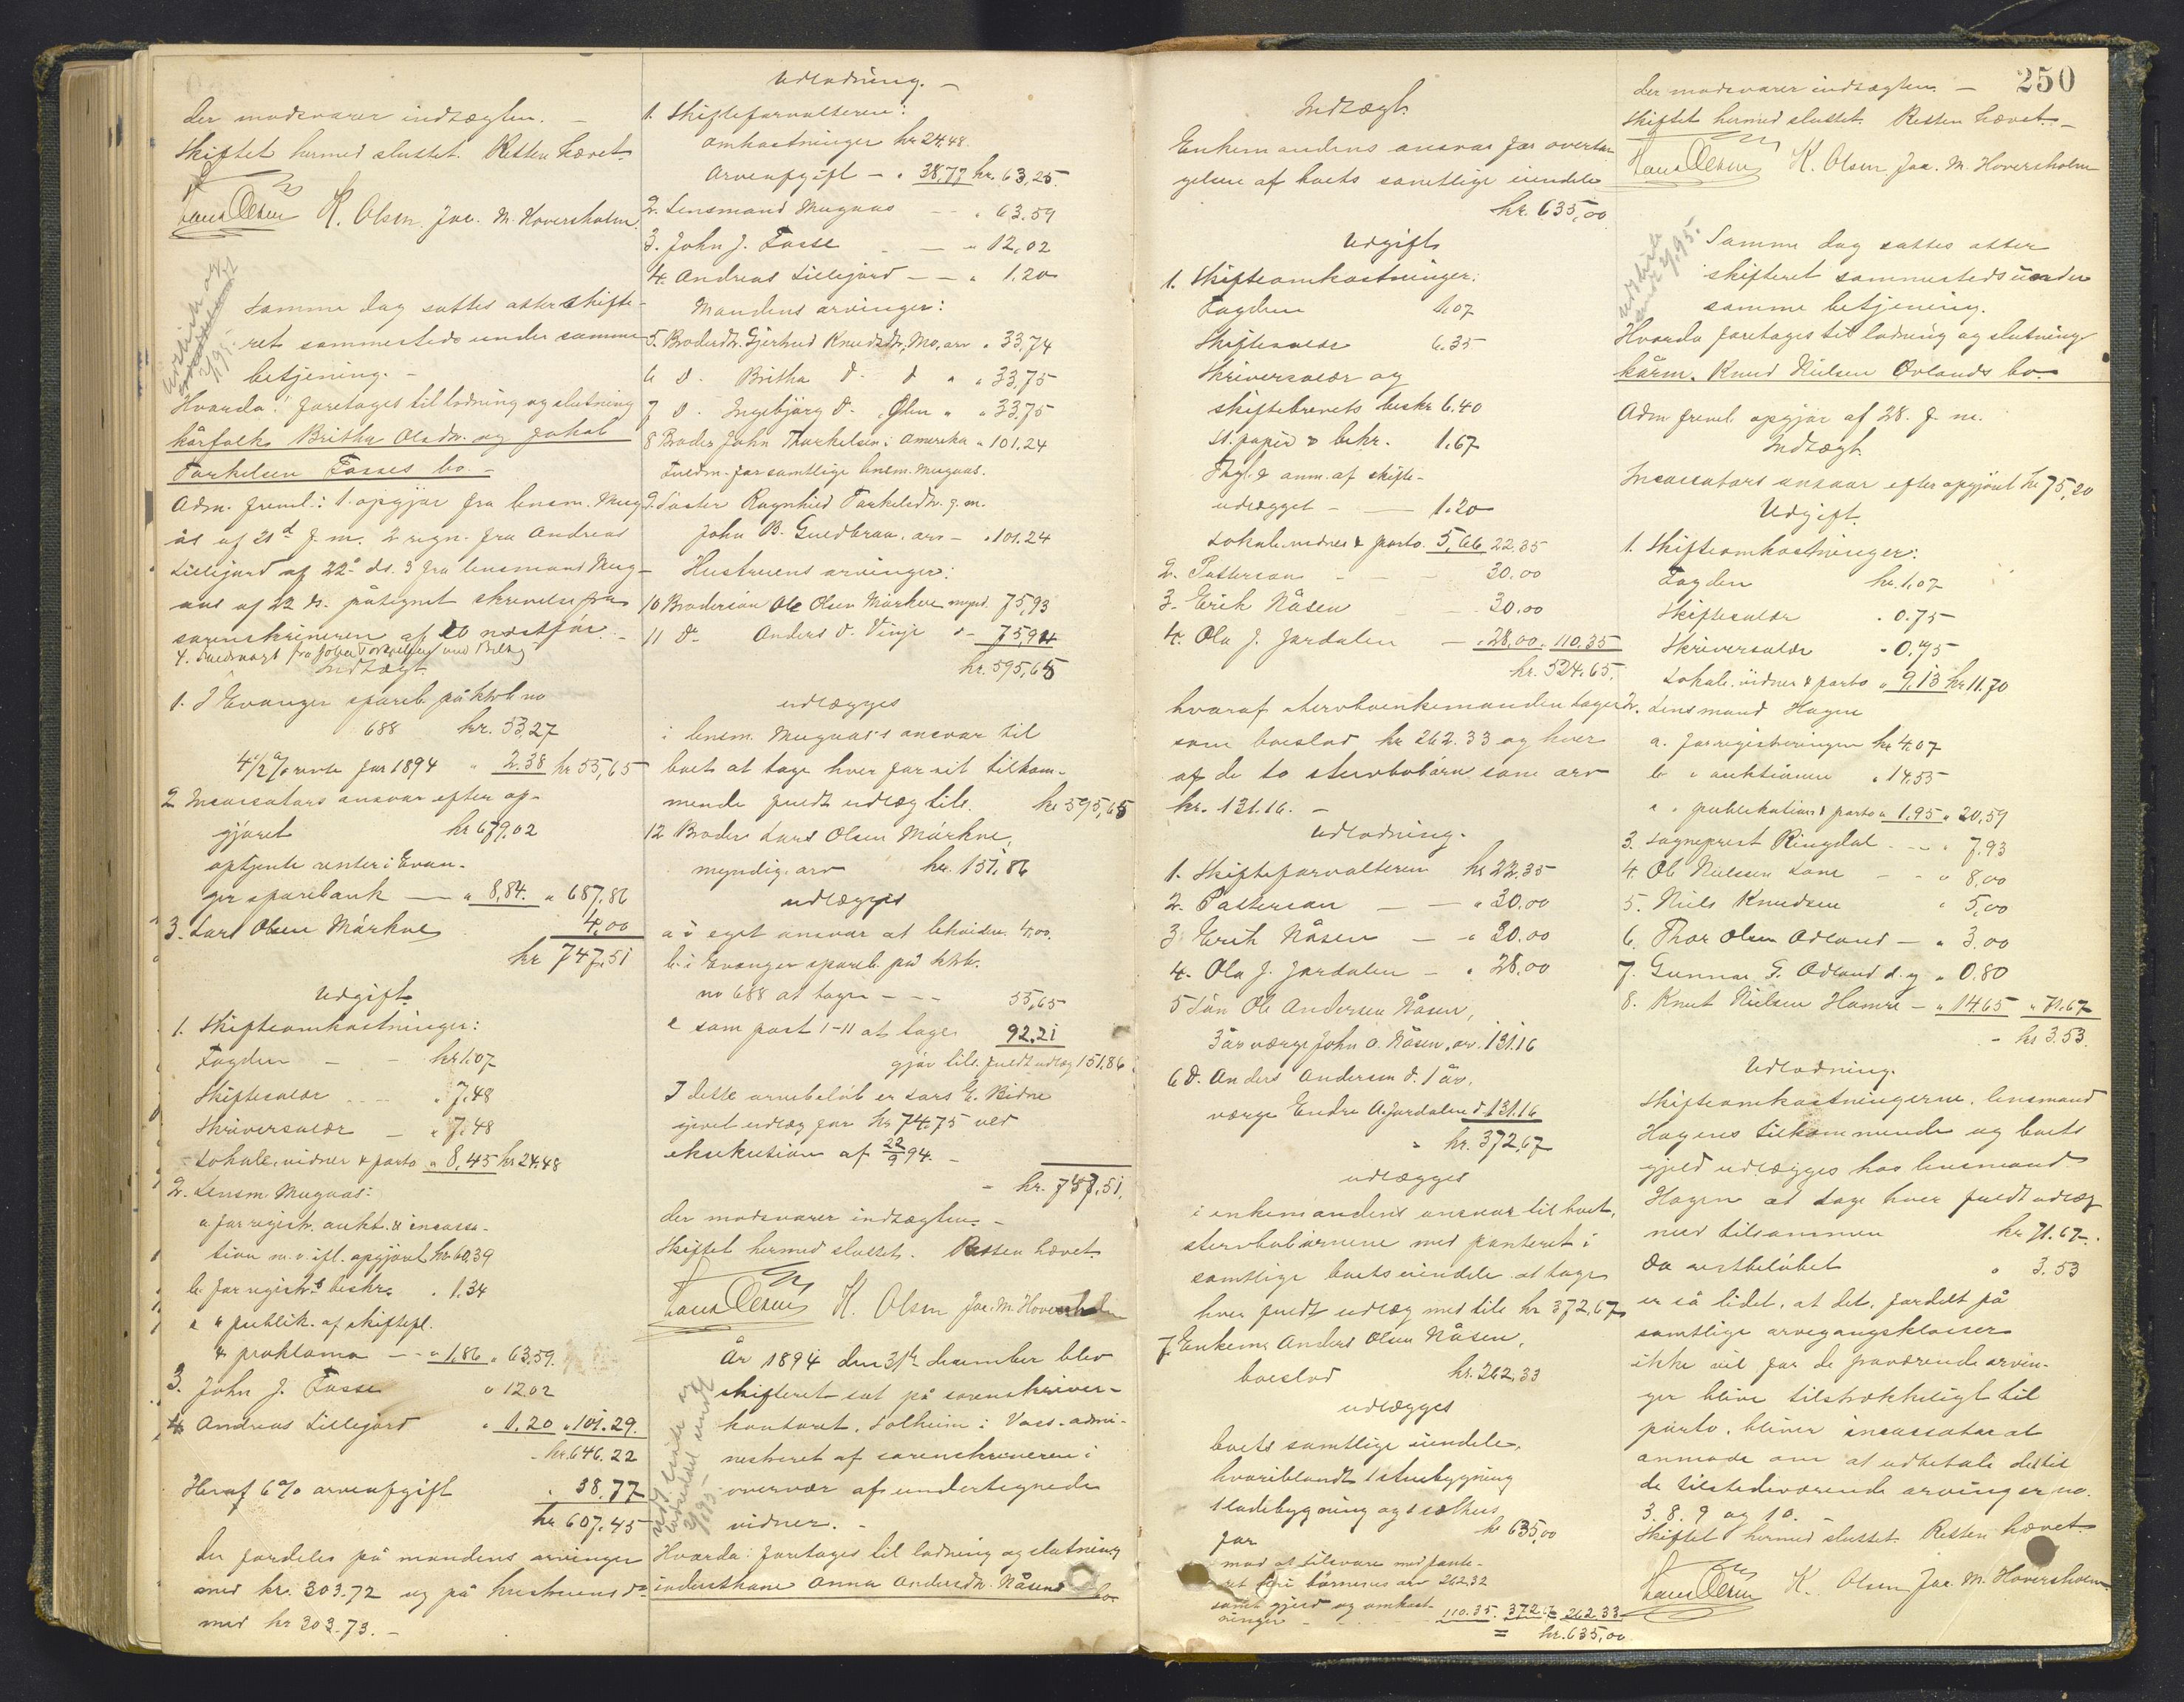 der modsvarer indtægten. —
Skiftet hermed sluttet. Retten hævet.
Hans Olsen K. Olsen Jac. M. Hoversholm
Samme dag sattes atter skifte-
ret sammesteds under samme
betjening. —
Hvorda: foretoges til lodning og slutning
kårfolk Britha Olsdr. og Jakob
Torkelsen Fosses bo. —
Adm. freml.: 1. opgjør fra lensm. Mug-
ås af 21d f. m. 2 regn. fra Andreas
Lillejord af 22d ds. 3 fra lensmand Mug-
aas af 22 ds. påtegnet skrivelse fra
sorenskriveren af 20 næstfør.
4. fuldmagt fra John Torkelsen med Bilag
Indtægt.
1. I Evanger spareb. på ktrb. no
688 kr. 53,27
4 1/2 % rente for 1894 " 2.38 kr 55,65
2 Incassators ansvar efter op-
gjøret kr 679,02
optjente renter i Evan-
ger sparebank — " 8,84. " 687,86
3. Lars Olsen Mårkve 4,00
kr 747,51
Udgift.
1. Skifteomkostninger:
Fogden — - kr 1.07
Skiftesalær " 7,48
Skriversalær — " 7,48
Lokale, vidner & porto " 8,45 kr 24,48
2. Lensm Mugaas:
a. for registr. aukt. & incassa-
tion m. v. ifl. opgjøret kr 60,39
b. for registr.s beskr. " 1.34
c " publik. af skiftepl.
& proklama — " 1,86 " 63,59.
3. John J. Fosse " 12.02
4 Andreas Lillejord " 1,20 " 101.29.
kr. 646.22
Heraf 6 % arveafgift " 38.77
kr 607.45
der fordeles på mandens arvinger
med kr. 303.72 og på hustruens do
med kr 303.73. —
Udlodning. —
1. Skifteforvalteren:
omkostninger kr. 24.48.
Arveafgift — " 38,77 kr. 63,25.
2. Lensmand Mugaas — " 63.59
3. John J. Fosse — " 12,02
4. Andreas Lillejord — " 1.20
Mandens arvinger:
5. Broderdtr. Gjertrud Knudsdtr, Mo, arv " 33,74
6 d. Britha d. d " " 33,75
7 d. Ingebjørg d. Øln " " 33,75
8 Broder John Thorkelsen i Amerika " 101.24
Fuldm. for samtlige lensm. Mugaas.
9. Søster Ragnhild Torkelsdtr. g. m.
John B. Guldbraa, arv — " 101.24
Hustruens arvinger:
10 Brodersøn Ole Olsen Mårkve mynd. 75,93
11 do Anders d. Vinje d— 75,94
kr. 595,65
udlægges
i lensm. Mugaas's ansvar til
boet at tage hver for sit tilkom-
mende fuldt udlæg tils. kr 595,65
12 Broder Lars Olsen Mårkve,
myndig, arv kr. 151,86
udlægges
a i eget ansvar at beholde 4,00.
b. i Evanger spareb. på ktrb.
no 688 at tage — - - 55,65
c som post 1-11 at tage 92.21
gjør tils. fuldt udlæg 151,86
I dette arvebeløb er Lars E. Bidne
givet udlæg for kr 74,75 ved
eksekution af 22/9 94. —
— kr. 747,51.
der modsvarer indtægten. —
Skiftet hermed sluttet. Retten hævet.
Hans Olsen K. Olsen Jac. M. Hoversholm
År 1894 den 31te december blev
skifteret sat på sorenskriver-
kontoret, Solheim i Voss, admi-
nistreret af sorenskriveren i
overvær af undertegnede
vidner. —
Hvorda: foretoges til lodning og slutning
inderstkone Anna Andersdtr. Nåsens bo
Indtægt.
Enkemandens ansvar for overta-
gelsen af boets samtlige eiendele
kr. 635,00
Udgift
1. Skifteomkostninger:
Fogden 1.07
Skiftesalær 6.35
Skriversalær og
skiftebrevets beskr 6.40
st. papir & bekr. 1.67
Thgl. & anm. af skifte-
udlægget — — 1.20
Lokale, vidner & porto. 5,66 22.35
2. Patterson — — 30.00
3. Erik Nåsen — 30.00
4. Ola J. Jordalen — " 28,00 " 110.35
kr. 524.65.
hvoraf stervboenkemanden tager
som boeslod kr 262.33 og hver
af de to stervbobørn som arv
kr. 131.16. —
Udlodning.
1. Skifteforvalteren kr 22.35
2. Patterson — — " 30.00
3 Erik Nåsen — " 30.00
4. Ola J. Jordalen — " 28,00
5 Søn Ole Andersen Nåsen,
3 år værge John O. Nåsen, arv. 131.16
6 d. Anders Andersen d. 1 år,
værge Endre A. Jordalen d 131.16
— kr. 372,67
udlægges
i enkemandens ansvar til boet,
stervbobørnene med panteret i
samtlige boets eiendele at tage
hver fuldt udlæg med tils kr 372,67
7. Enkem. Anders Olsen Nåsen,
boeslod kr. 262,33
udlægges
boets samtlige eiendele,
hvoriblandt 1 stuebygning
1 ladebygning og 1 sælhus
for kr 635,00
mod at tilsvare med pante-
ret for børnenes arv 262.32
samt gjeld og omkost-
ninger — 110.35. 372,67 262.33
= kr. 635,00
250
der modsvarer indtægten —
Skiftet hermed sluttet. Retten hævet. —
Hans Olsen K. Olsen Jac. M. Hoversholm
Samme dag sattes atter
skifteret sammesteds under
samme betjening.
Hvorda foretoges til lodning og slutning
kårm. Knud Nielsen Øvlands bo
Adm freml. opgjør af 28. f. m.
Indtægt
Incassators ansvar efter opgjøret kr 75,20
Udgift.
1. Skifteomkostninger:
Fogden kr. 1.07
Skiftesalær " 0.75
Skriversalær " 0.75
Lokale, vidner & porto " 9,13 kr 11.70
2. Lensmand Hagen
a. for registreringen kr 4.07
b " auktionen " 14.55
c " publikation & porto " 1.95 " 20,59
3. Sogneprest Ringdal — " 7.93
4. Ole Nielsen Lone — - " 8,00
5. Niels Knudsen " 5,00
6. Thor Olsen Odland — " 3.00
7. Gunnar T. Odland d. y " 0.80
8. Knut Nielsen Hamre — " 14.65 " 71.67
— kr 3.53.
Udlodning.
Skifteomkostningerne, lensmand
Hagens tilkommende og boets
gjeld udlægges hos lensmand
Hagen at tage hver fuldt udlæg
med tilsammen kr 71.67.
Da restbeløbet " 3.53
er så lidet, at det, fordelt på
samtlige arvegangsklasser
ikke vil for de fraværende arvin-
ger blive tilstrækkeligt til
porto, bliver incassator at
anmode om at udbetale det til
de tilstedeværende arvinger no.
3. 8. 9 og 10. —
Skiftet hermed sluttet. Retten hævet.
Hans Olsen K. Olsen Jac. M. Hoversholm